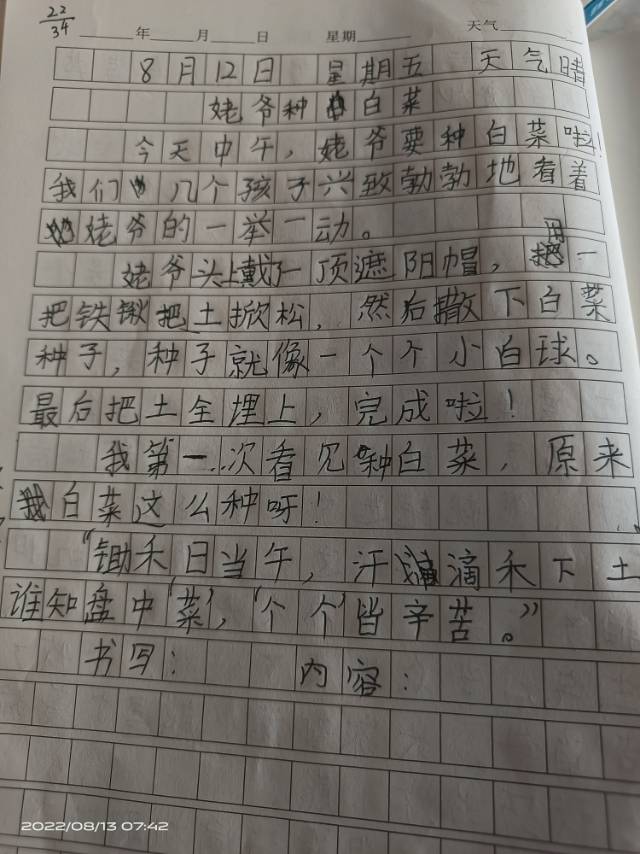 22/34
年 月 日 星期 天气
8月12日 星期五 天气晴
姥爷种白菜
今天中午，姥爷要种白菜啦！
我们几个孩子兴致勃勃地看着
姥爷的一举一动。
姥爷头上戴了一顶遮阳帽，用一
把铁锹把土掀松，然后撒下白菜
种子，种子就像一个个小白球。
最后把土全埋上，完成啦！
我第一次看见种白菜，原来
白菜这么种呀！
“锄禾日当午，汗滴禾下土
谁知盘中‘菜’，‘个个’皆辛苦。”
书写： 内容：
2022/08/13 07:42